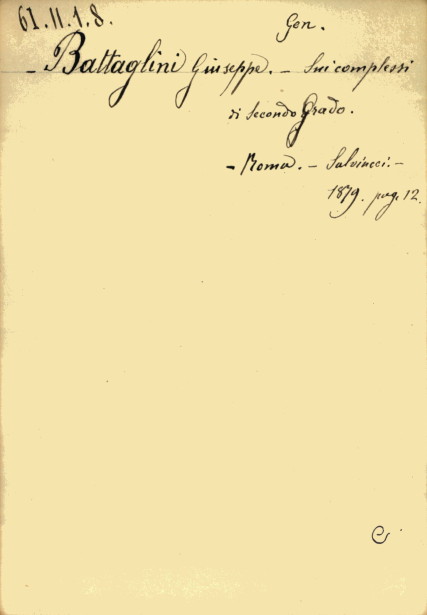 61.II.1.8.
Gen.
- Battaglini Giuseppe. - Sui complessi
di secondo Grado.
- Roma. - Salviucci. -
1879. pag. 12.